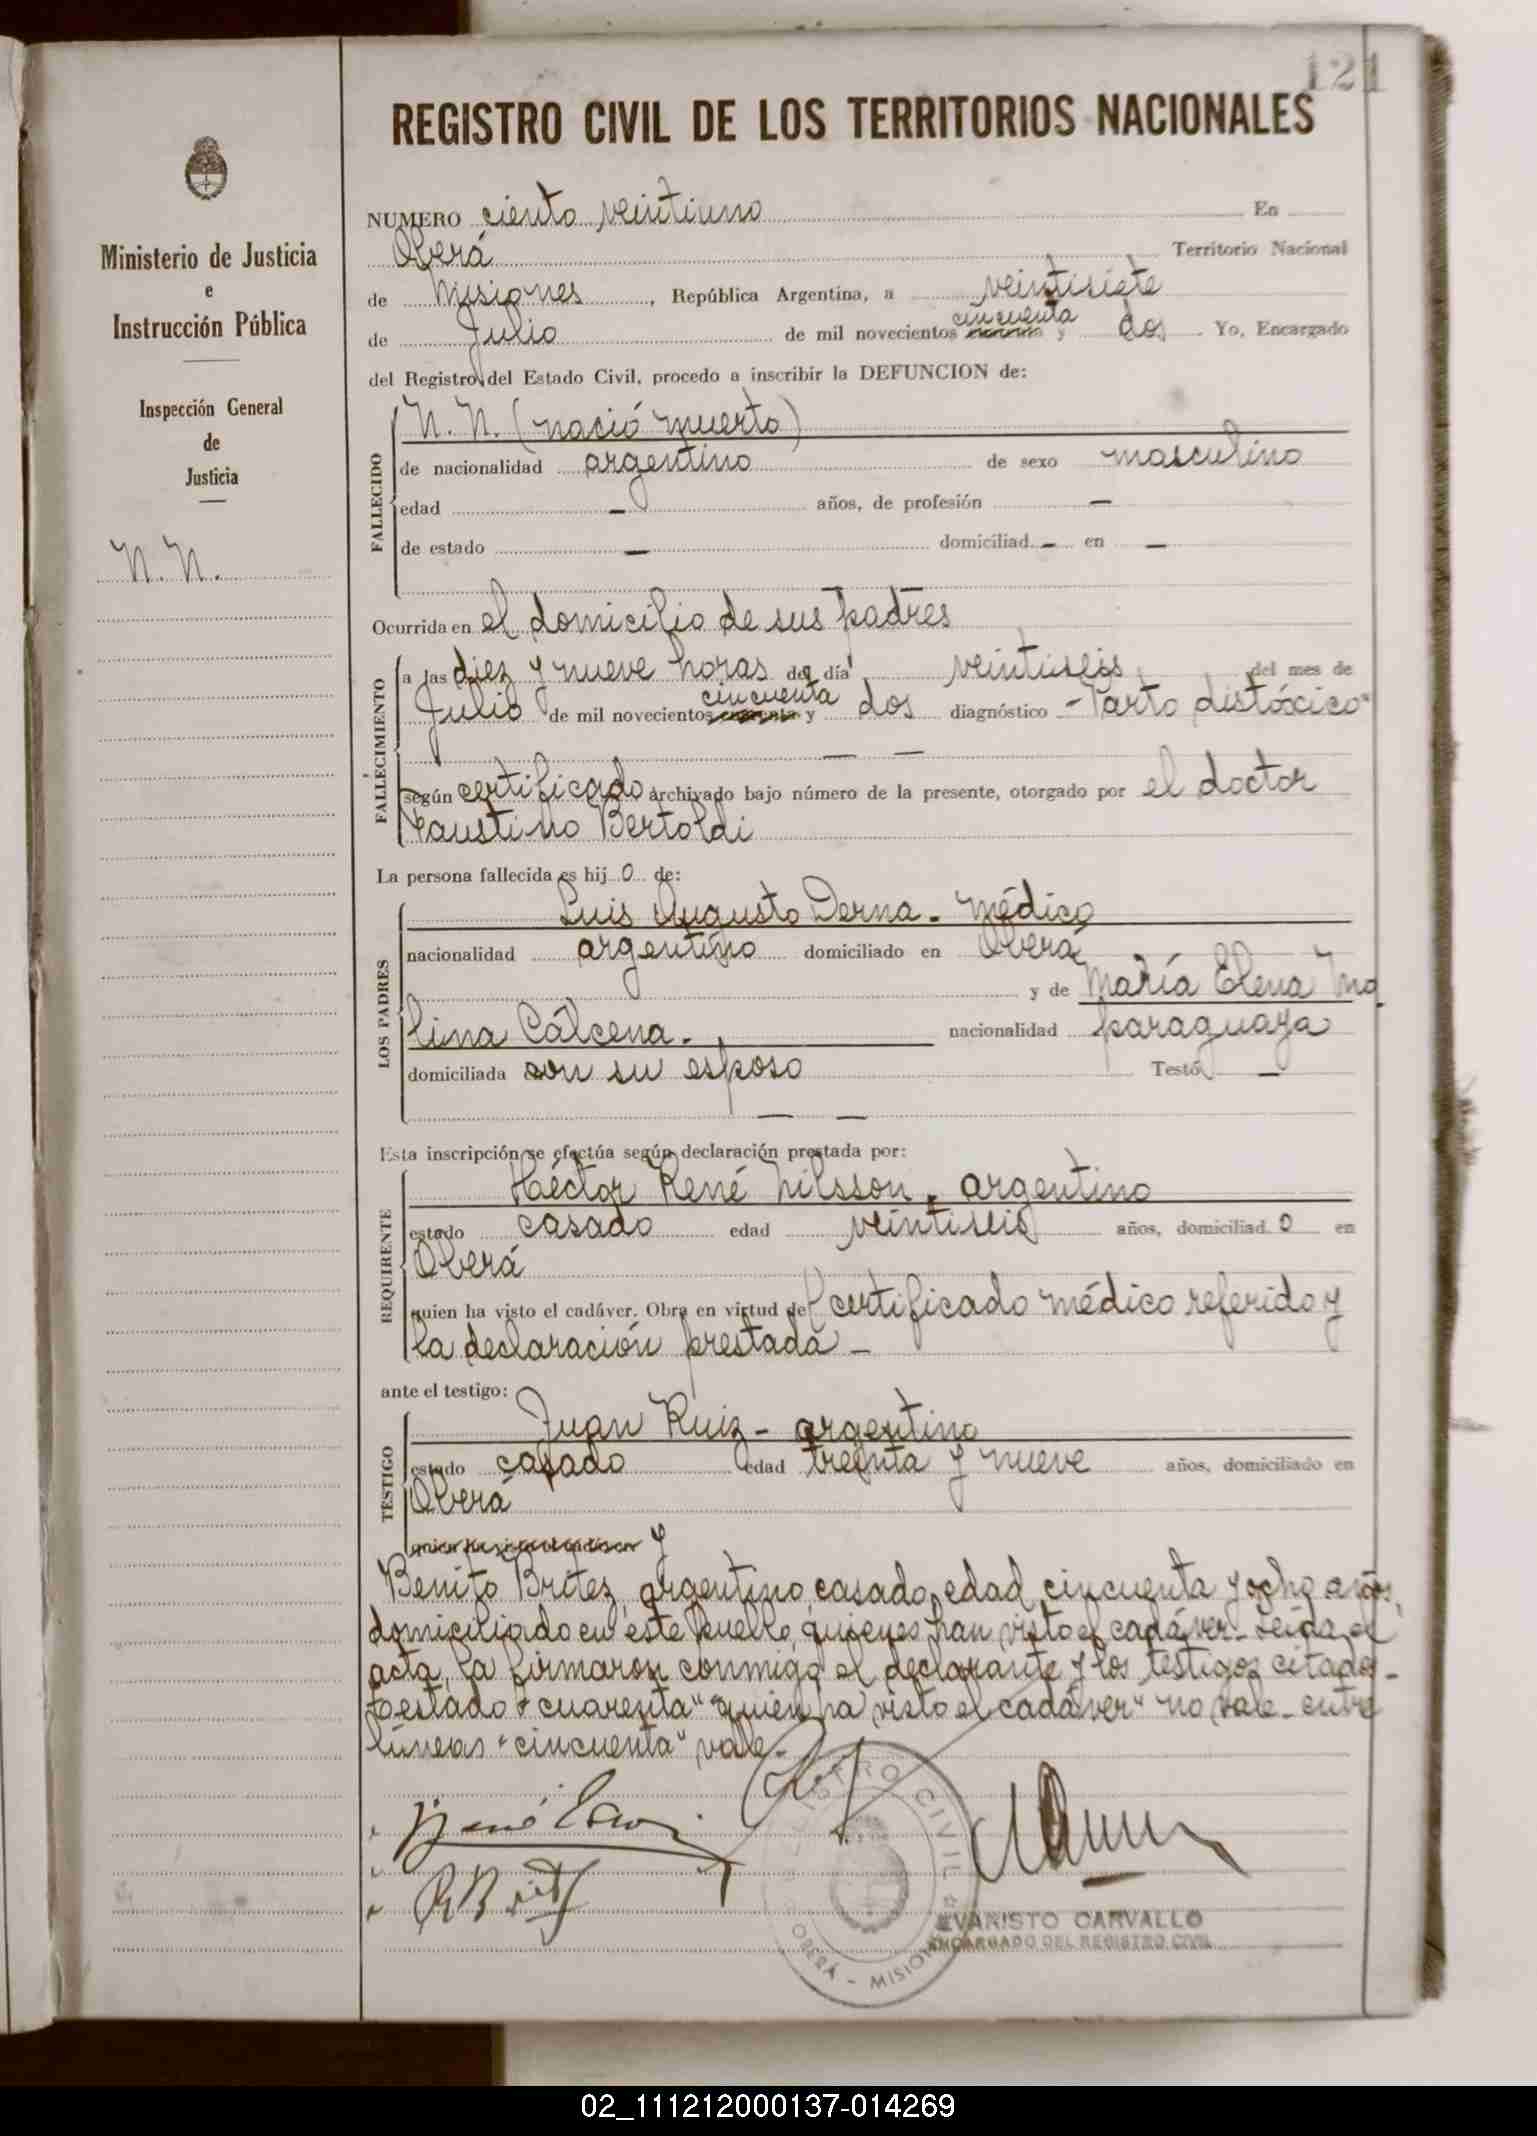 121
REGISTRO CIVIL DE LOS TERRITORIOS NACIONALES
Ministerio de Justicia
e
Instrucción Pública
Inspección General
de
Justicia
N. N.
NUMERO ciento veintiuno En
Oberá Territorio Nacional
de Misiones, República Argentina, a veintisiete
de Julio de mil novecientos cincuenta y dos. Yo, Encargado
del Registro del Estado Civil, procedo a inscribir la DEFUNCION de:
FALLECIDO
N. N. (nació muerto)
de nacionalidad argentino de sexo masculino
edad — años, de profesión —
de estado — domiciliad — en —
Ocurrida en el domicilio de sus padres
FALLECIMIENTO
a las diez y nueve horas del día veintiseis del mes de
Julio de mil novecientos cincuenta y dos diagnóstico - Parto distóxico"
— —
según certificado archivado bajo número de la presente, otorgado por el doctor
Faustino Bertoldi
La persona fallecida es hijo de:
LOS PADRES
Luis Augusto Derna - médico
nacionalidad argentino domiciliado en Oberá
y de María Elena Mo
lina Cálcena. nacionalidad paraguaya
domiciliada con su esposo Testó —
— —
Esta inscripción se efectúa según declaración prestada por:
REQUIRENTE
Héctor René Nilsson, argentino
estado casado edad veintiseis años, domiciliado en
Oberá
quien ha visto el cadáver. Obra en virtud del certificado médico referido y
la declaración prestada -
ante el testigo:
TESTIGO
Juan Ruiz - argentino
estado casado edad treinta y nueve años, domiciliado en
Oberá
y
Benito Britez, argentino, casado, edad cincuenta y ocho años,
domiciliado en este pueblo, quienes han visto el cadáver. Leida el
acta, la firmaron conmigo el declarante y los testigos citados -
testado "cuarenta" "quien ha visto el cadáver" no vale - entre
líneas "cincuenta" vale -
REGISTRO CIVIL
OBERÁ - MISIONES
EVARISTO CARVALLO
ENCARGADO DEL REGISTRO CIVIL
02_111212000137-014269